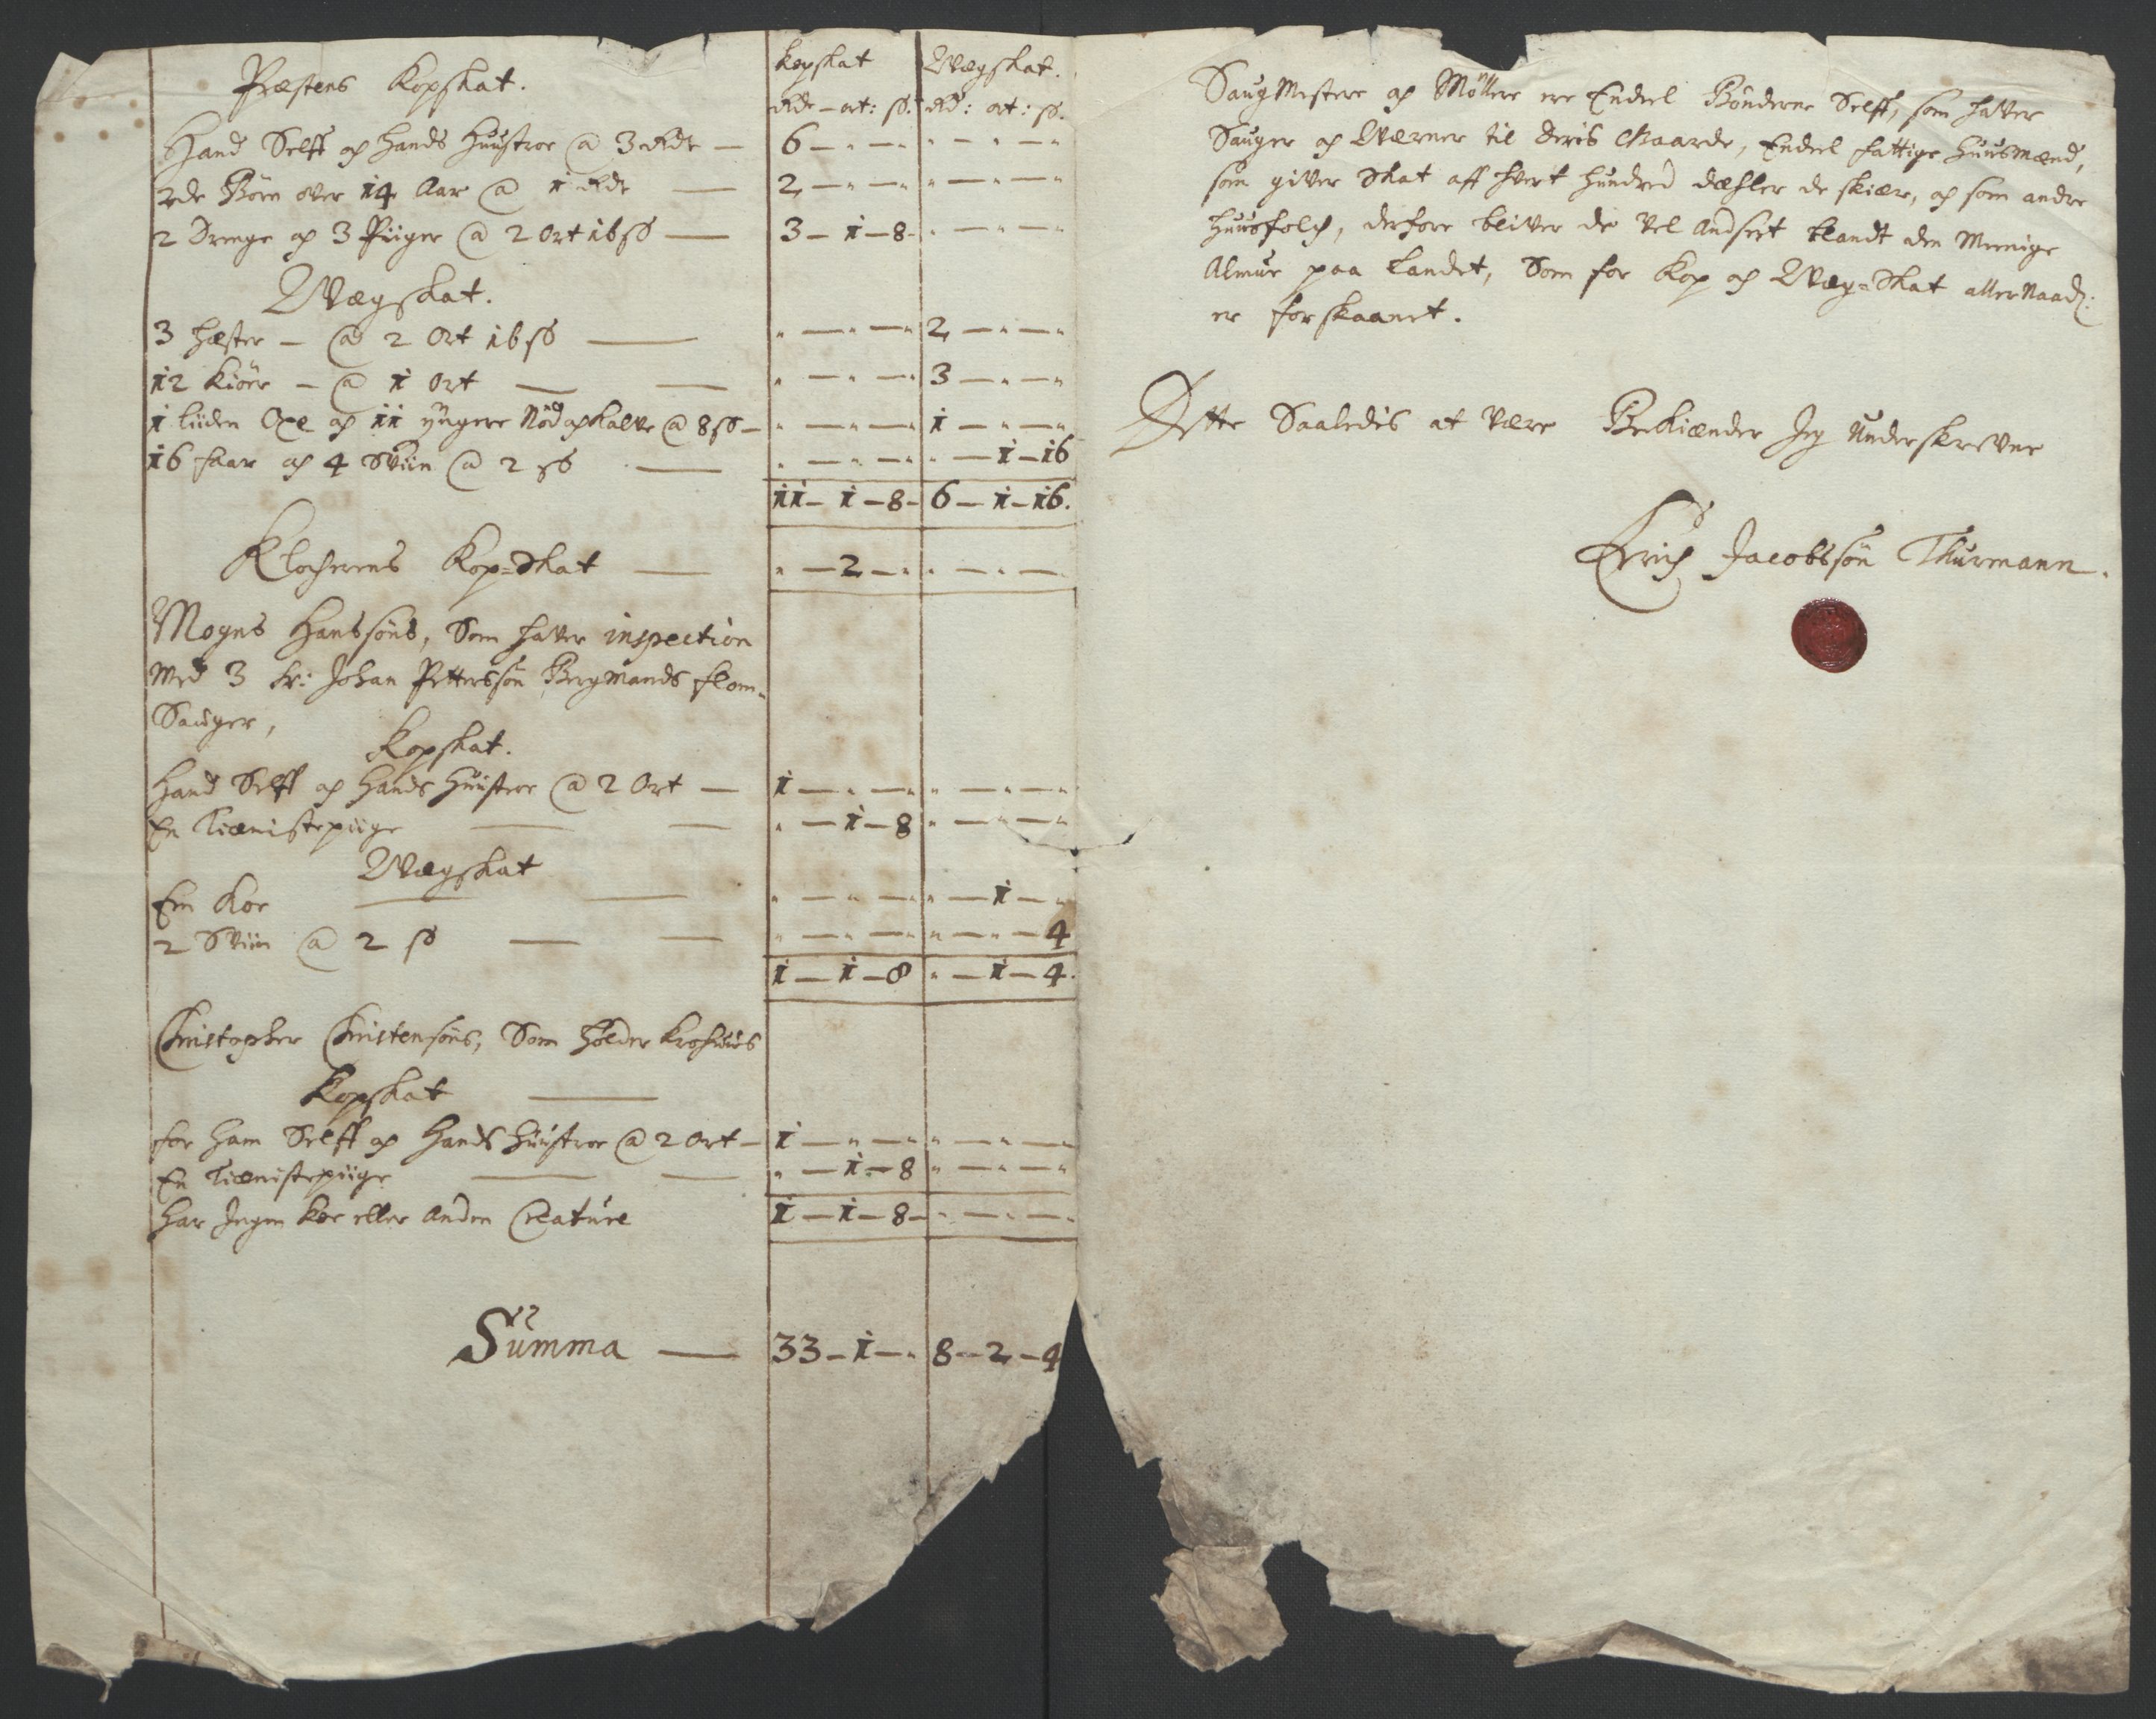 Kopskat Qvægskat.
Præstens Kopskat. Rdr – ort: ß: Rd: ort: ß.
Hand Selff og hands Huustroe @ 3 Rdr — 6 – " – " " – " – "
2de Børn over 14 Aar @ 1 Rdr — 2 – " – " " – " – "
2 Drenge og 3 Piiger @ 2 Ort 16 ß — 3 – 1 – 8 – " – " – "
Qvægskat.
3 Hæster – @ 2 Ort 16 ß — " – " – " 2 – " – "
12 Kiöer – @ 1 Ort — " – " – " 3 – " – "
1 liiden Oxe og 11 yngere Nød og Kalve @ 8 ß – " – " – " 1 – " – "
16 faar og 4 Sviin @ 2 ß — " – " – " " – 1 – 16
11 – 1 – 8 – 6 – 1 – 16.
Klockerens Kop=Skat — " – 2 – " " – " – "
Mogns Hanssöns, Som hafver inspection
Med 3 Sr: Johan Pettersøn Bergmands flom-
Sauger,
Kopskat.
Hand Selff og Hands Huustroe @ 2 Ort — 1 – " – " " – " – "
En Tienistepiige — " – 1 – 8 " – " – "
Qvægskat
Een Koe — " – " – " " – 1 – "
2 Sviin @ 2 ß — " – " – " " – " – 4
1 – 1 – 8 " – 1 – 4.
Christopher Christensöns, Som holder Krohuus
Kopskat —
for Ham Selff og Hands Huustroe @ 2 Ort – 1 – " – " " – " – "
En Tienistepiige — " – 1 – 8 " – " – "
Har Ingen Koe eller Anden Creature 1 – 1 – 8 – " – " – "
Summa — 33 – 1 – " 8 – 2 – 4
Saug Mestere og Møllere ere Endeel Bönderne Selff, som hafver
Sauger og Qverner til deris Gaarde, Endeel fattige Huusmænd,
som giver Skat aff hvert hundred dæhler de skiær, og som andre
Huusfolck, derfore bliver de vel Andseet blandt den Meenige
Almue paa Landet, Som for Kop og Qvæg=Skat aller Naad:
er forskaanet.
Dette Saaledis at være Bekiænder Jeg Underskrevne
Erich Jacobssøn Thurmann.